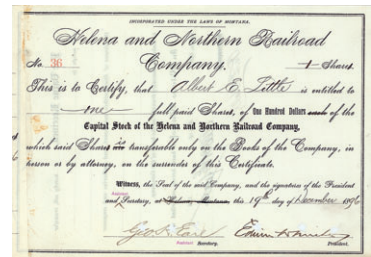 INCORPORATED UNDER THE LAWS OF MONTANA.
Helena and Northern Railroad
No. 36 Company. 1 Shares.
This is to Certify, that Albert E. Little is entitled to
one full paid Shares, of One Hundred Dollars each of the
Capital Stock of the Helena and Northern Railroad Company,
which said Shares are transferable only on the Books of the Company, in
person or by attorney, on the surrender of this Certificate.
Witness, the Seal of the said Company, and the signatures of the President
Assistant
and Secretary, at Helena, Montana this 19th day of December 1896
Geo. H. Earl Edwin
Assistant Secretary. President.